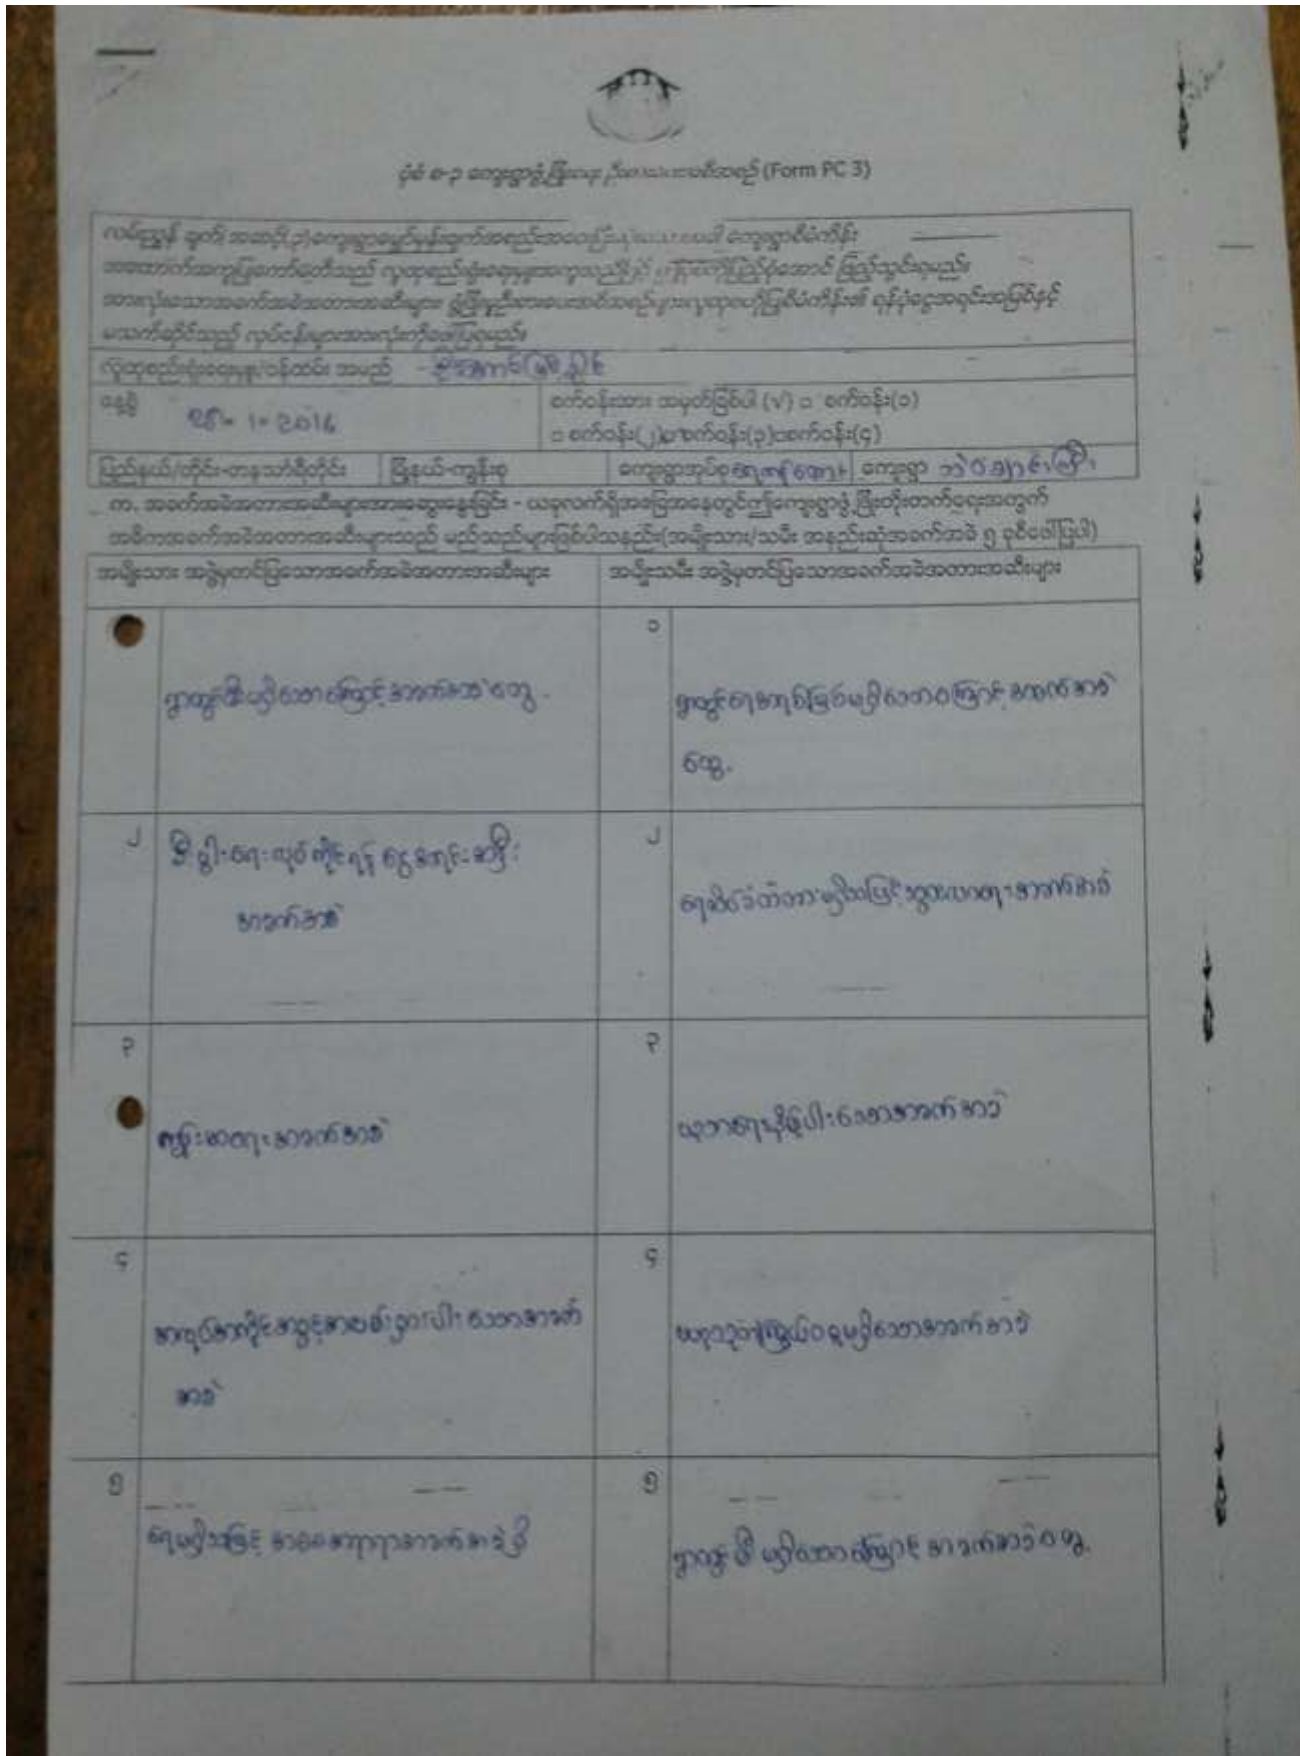 ပုံစံ စ-၃ ကျေးရွာဖွံ့ဖြိုးရေး ဦးစားပေးအစီအစဉ် (Form PC 3)
လမ်းညွှန် ချက်၊ အဆင့်(၃)ကျေးရွာမျှော်မှန်းချက်အရည်အသွေး ကျေးရွာစီမံကိန်း
အထောက်အကူပြုကော်မတီသည် လူထုစည်းရုံးရေးမှူးအကူအညီဖြင့် ပြည့်စုံအောင် ဖြည့်သွင်းရမည်။
အားလုံးသောအခက်အခဲအတားအဆီးများ၊ ဖွံ့ဖြိုးမှုဦးစားပေးအစီအစဉ်များ စီမံကိန်း၏ ရန်ပုံငွေအရင်းအမြစ်နှင့်
မသက်ဆိုင်သည့် လုပ်ငန်းများအားလုံးကိုဖော်ပြရမည်။
လူထုစည်းရုံးရေးမှူး/ဝန်ထမ်း အမည် -
နေ့စွဲ
စက်ဝန်းအား အမှတ်ခြစ်ပါ (√) □ စက်ဝန်း(၁)
□ စက်ဝန်း(၂)□စက်ဝန်း(၃)□စက်ဝန်း(၄)
ပြည်နယ်/တိုင်း-တနင်္သာရီတိုင်း မြို့နယ်-ကျွန်းစု ကျေးရွာအုပ်စု ကျေးရွာ
က. အခက်အခဲအတားအဆီးများအားဆွေးနွေးခြင်း - ယခုလက်ရှိအခြေအနေတွင်ဤကျေးရွာဖွံ့ဖြိုးတိုးတက်ရေးအတွက်
အဓိကအခက်အခဲအတားအဆီးများသည် မည်သည်များဖြစ်ပါသနည်း(အမျိုးသား/သမီး အနည်းဆုံးအခက်အခဲ ၅ ခုစီဖော်ပြပါ)
အမျိုးသား အဖွဲ့မှတင်ပြသောအခက်အခဲအတားအဆီးများ
အမျိုးသမီး အဖွဲ့မှတင်ပြသောအခက်အခဲအတားအဆီးများ
ရွာတွင်မီးမရှိသောကြောင့်အခက်အခဲတွေ့
၁
ရွာတွင်ရေအရင်းမြစ်မရှိသောကြောင့်အခက်အခဲ
တွေ့
၂
စီးပွါးရေးလုပ်ကိုင်ရန်ငွေအရင်းအနှီး
အခက်အခဲ
၂
ရေဆိပ်ခံတံတားမရှိသဖြင့်သွားလာရေးအခက်အခဲ
၃
ကျန်းမာရေးအခက်အခဲ
၃
ပညာရေးနိမ့်ပါးသောအခက်အခဲ
၄
အလုပ်အကိုင်အခွင့်အလမ်းရှားပါးသောအခက်
အခဲ
၄
ဗဟုသုတကြွယ်ဝမှုမရှိသောအခက်အခဲ
၅
ရေမရှိသဖြင့် အခက်အခဲရှိ
၅
ရွာတွင်မီးမရှိသောကြောင့်အခက်အခဲတွေ့